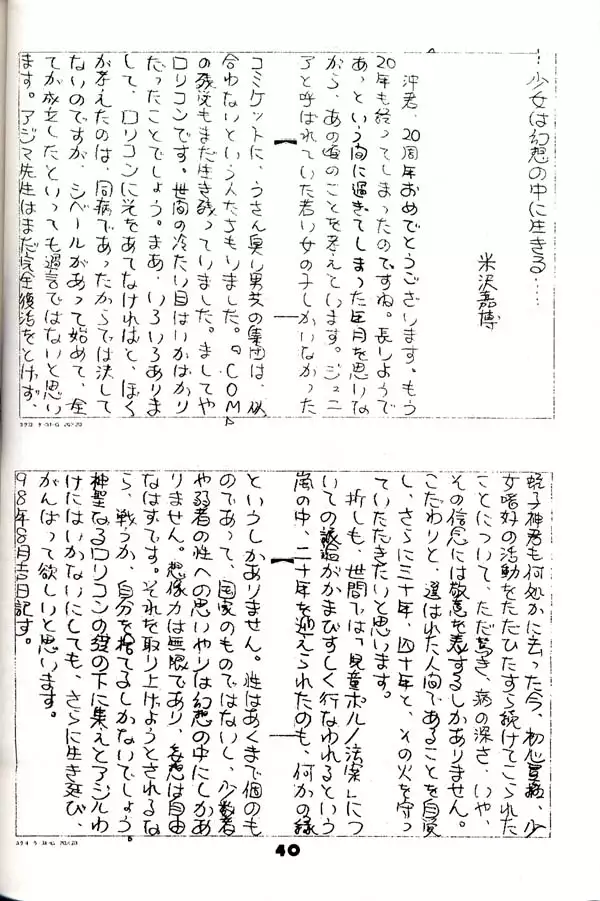 …少女は幻想の中に生きる……
米沢嘉博
沖君、20周年おめでとうございます。もう
20年も経ってしまったのですね。長いようで
あっという間に過ぎてしまった年月を思いな
がら、あの頃のことを考えています。ジュニ
アと呼ばれていた若い女の子しかいなかった
コミケットに、うさん臭い男共の集団は、似
合わないという人たちもいました。『COM』
の残党もまだ生き残っていました。ましてや
ロリコンです。世間の冷たい目はいかばかり
だったことでしょう。まあ、いろいろありま
して、ロリコンに光をあてなければと、ぼく
が考えたのは、同病であったからでは決して
ないのですが、シベールがあって始めて、全
てが成立したといっても過言ではないと思い
ます。アジマ先生はまだ完全復活をとげず、
コクヨ ケ-31-G 20×20
蛭子神君も何処かに去った今、初心貫徹、少
女嗜好の活動をただひたすら続けてこられた
ことについて、ただ驚き、病の深さ、いや、
その信念には敬意を表するしかありません。
こだわりと、選ばれた人間であることを自覚
し、さらに三十年、四十年と、その火を守っ
ていただきたいと思います。
折しも、世間では「児童ポルノ法案」につ
いての議論がかまびすしく行なわれるという
嵐の中、二十年を迎えられたのも、何かの縁
というしかありません。性はあくまで個のも
のであって、国家のものではないし、少数者
や弱者の性への思いやりは幻想の中にしかあ
りません。想像力は無限であり、妄想は自由
なはずです。それを取り上げようとされるな
ら、戦うか、自分を捨てるしかないでしょう。
神聖なるロリコンの旗の下に集えとアジルわ
けにはいかないにしても、さらに生き延び、
がんばって欲しいと思います。
98年8月吉日記す。
40